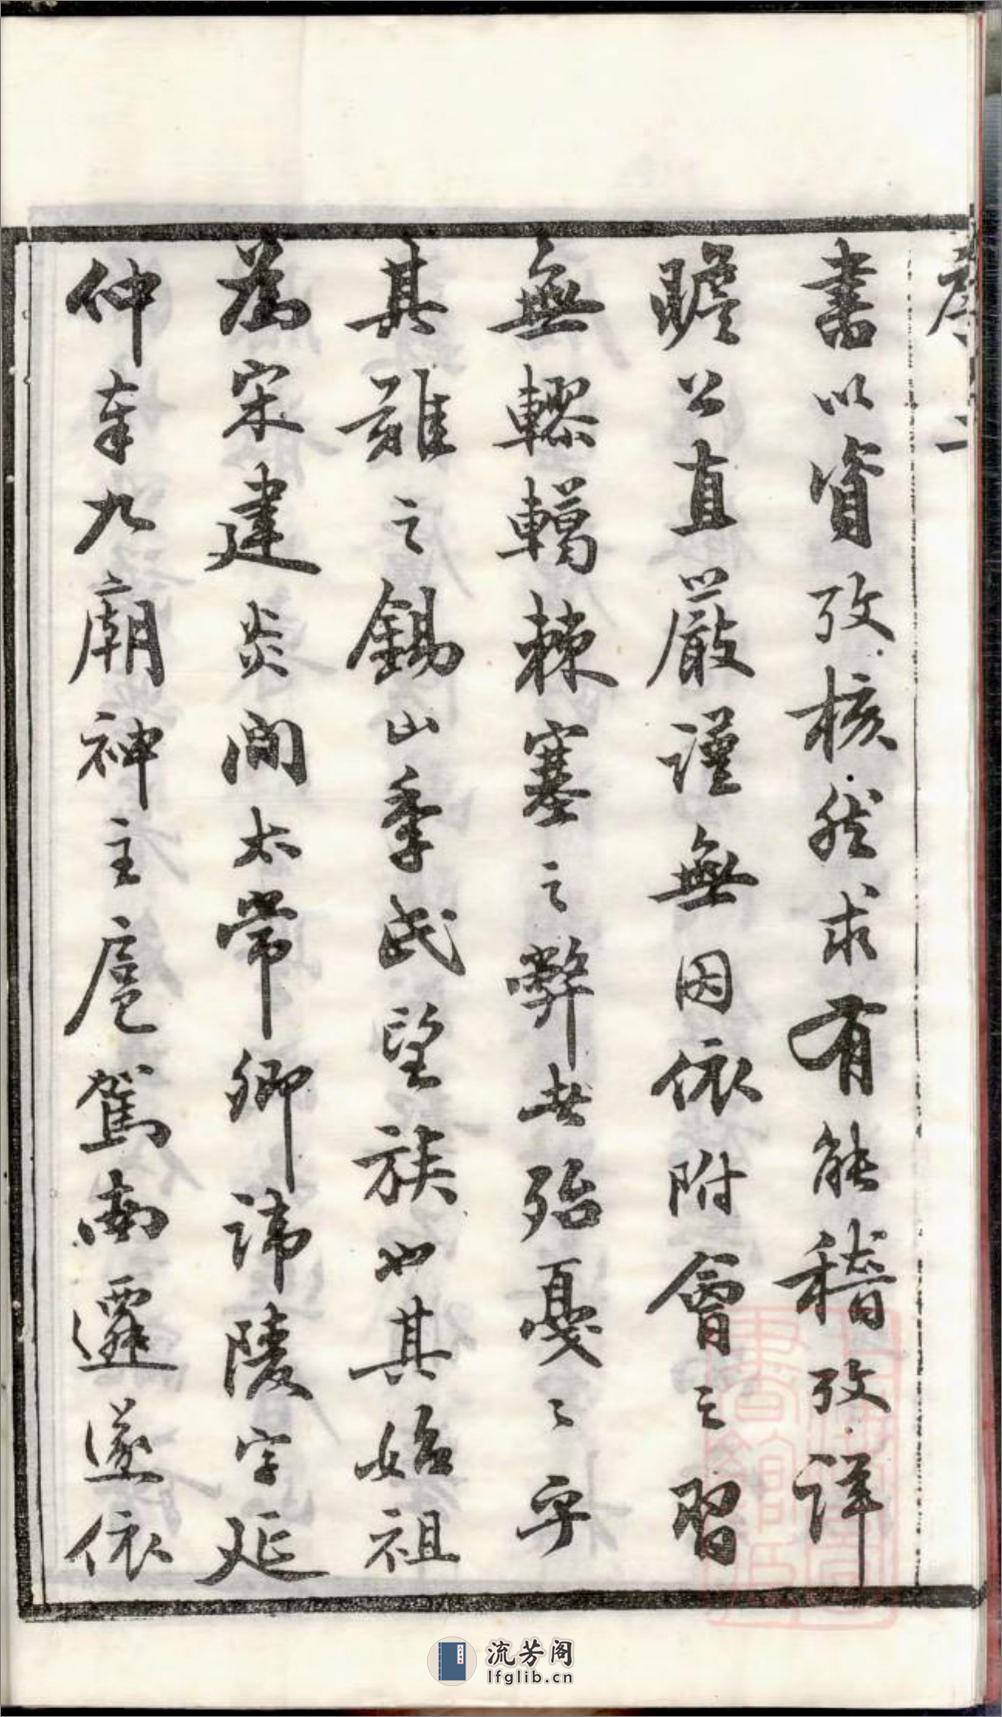 序 二
書以資攷核然求有能稽攷詳
瞻公直嚴謹無因依附會之習
無轇轕棘塞之弊者殆戛〻乎
其難之錫山季氏望族也其始祖
為宋建炎間太常卿諱陵字延
仲奉九廟神主扈駕南遷遂依
流芳阁
lfglib.cn